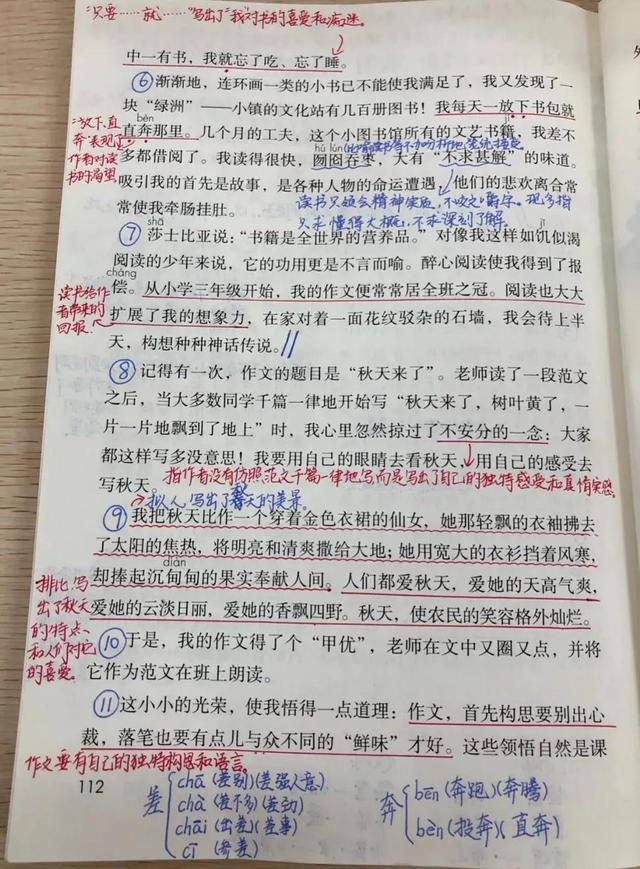 “只要……就……”写出了“我”对书的喜爱和痴迷。
中一有书，我就忘了吃、忘了睡。
⑥渐渐地，连环画一类的小书已不能使我满足了，我又发现了一
块“绿洲”——小镇的文化站有几百册图书！我每天一放下书包就
“放下、直奔”表现了作者对读书的渴望
bēn
jí
直奔那里。几个月的工夫，这个小图书馆所有的文艺书籍，我差不
hú lún
多都借阅了。我读得很快，囫囵吞枣，大有“不求甚解”的味道。
吸引我的首先是故事，是各种人物的命运遭遇，他们的悲欢离合常
读书只领会精神实质，不咬文嚼字。现多指
常使我牵肠挂肚。
只求懂得大概，不求深刻了解。
shā
jī
⑦莎士比亚说：“书籍是全世界的营养品。”对像我这样如饥似渴
阅读的少年来说，它的功用更是不言而喻。醉心阅读使我得到了报
cháng
偿。从小学三年级开始，我的作文便常常居全班之冠。阅读也大大
读书给作者带来的回报
扩展了我的想象力，在家对着一面花纹驳杂的石墙，我会待上半
天，构想种种神话传说。
⑧记得有一次，作文的题目是“秋天来了”。老师读了一段范文
之后，当大多数同学千篇一律地开始写“秋天来了，树叶黄了，一
片一片地飘到了地上”时，我心里忽然掠过了不安分的一念：大家
都这样写多没意思！我要用自己的眼睛去看秋天，用自己的感受去
指作者没有仿照范文千篇一律地写而是写出了自己的独特感受和真情实感
写秋天。
拟人，写出了秋天的美景。
⑨我把秋天比作一个穿着金色衣裙的仙女，她那轻飘的衣袖拂去
了太阳的焦热，将明亮和清爽撒给大地；她用宽大的衣衫挡着风寒，
diān
却捧起沉甸甸的果实奉献人间。人们都爱秋天，爱她的天高气爽，
排比，写出了秋天的特点、和人们对它的喜爱。
爱她的云淡日丽，爱她的香飘四野。秋天，使农民的笑容格外灿烂。
⑩于是，我的作文得了个“甲优”，老师在文中又圈又点，并将
它作为范文在班上朗读。
⑪这小小的光荣，使我悟得一点道理：作文，首先构思要别出心
裁，落笔也要有点儿与众不同的“鲜味”才好。这些领悟自然是课
作文要有自己的独特构思和语言。
112
差
chā（差别）（差强人意）
chà（差不多）（差劲）
chāi（出差）（差事）
cī（参差）
奔
bēn（奔跑）（奔腾）
bèn（投奔）（直奔）